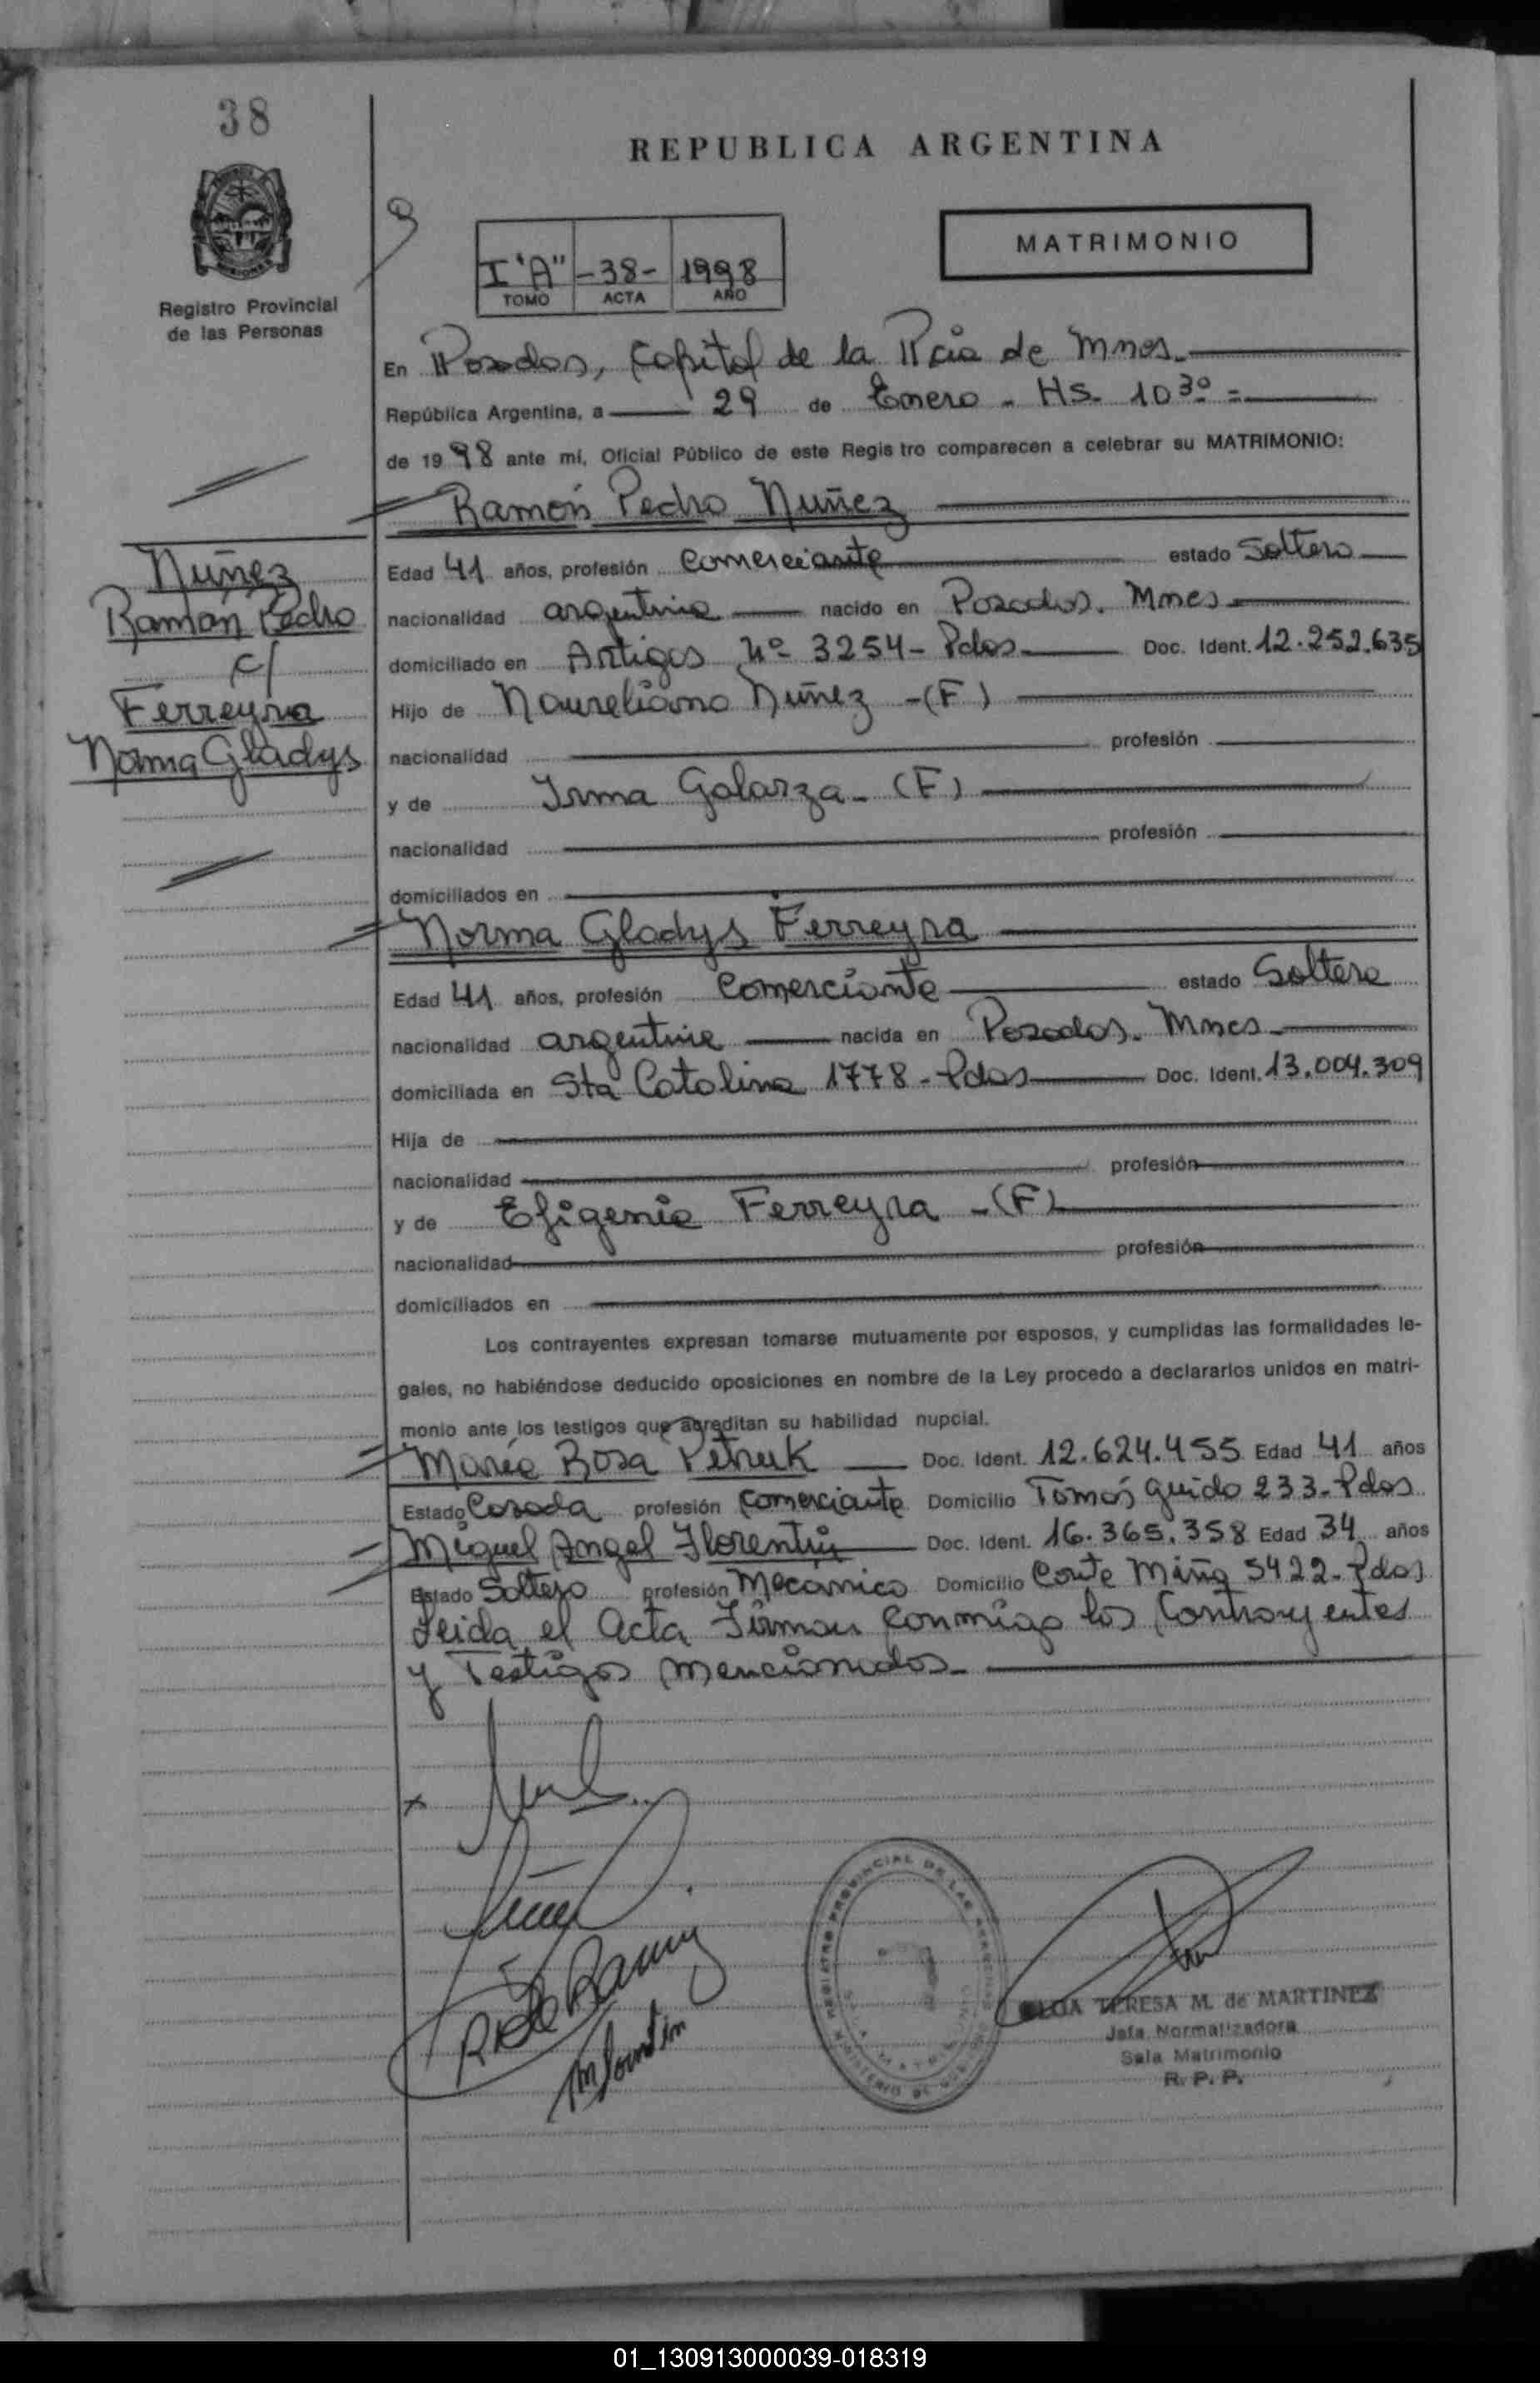 38
REPUBLICA ARGENTINA
MATRIMONIO
I "A" -38- 1998
TOMO ACTA AÑO
Registro Provincial
de las Personas
En Posadas, Capital de la Pcia de Mnes.
República Argentina, a 29 de Enero - Hs. 10 30 =
de 1998 ante mí, Oficial Público de este Regis tro comparecen a celebrar su MATRIMONIO:
Ramón Pedro Nuñez
Nuñez
Ramón Pedro
c/
Ferreyra
Norma Gladys
Edad 41 años, profesión Comerciante estado Soltero
nacionalidad argentina nacido en Posadas. Mnes
domiciliado en Artigas Nº 3254 - Pdas Doc. Ident. 12.252.635
Hijo de Naureliano Nuñez - (F)
nacionalidad profesión
y de Irma Galarza - (F)
nacionalidad profesión
domiciliados en
Norma Gladys Ferreyra
Edad 41 años, profesión Comerciante estado Soltera
nacionalidad argentina nacida en Posadas. Mnes
domiciliada en Sta Catalina 1778 - Pdas Doc. Ident. 13.004.309
Hija de
nacionalidad profesión
y de Efigenia Ferreyra - (F)
nacionalidad profesión
domiciliados en
Los contrayentes expresan tomarse mutuamente por esposos, y cumplidas las formalidades le-
gales, no habiéndose deducido oposiciones en nombre de la Ley procedo a declararlos unidos en matri-
monio ante los testigos que acreditan su habilidad nupcial.
María Rosa Petruk Doc. Ident. 12.624.455 Edad 41 años
Estado Casada profesión Comerciante Domicilio Tomás Guido 233 - Pdas
Miguel Angel Florentín Doc. Ident. 16.365.358 Edad 34 años
Estado Soltero profesión Mecánico Domicilio Corte 5422 - Pdas
Leida el Acta Firman Conmigo los Contrayentes
y Testigos mencionados -
TERESA M. de MARTINEZ
Jefa Normalizadora
Sala Matrimonio
R. P. P.
01_130913000039-018319